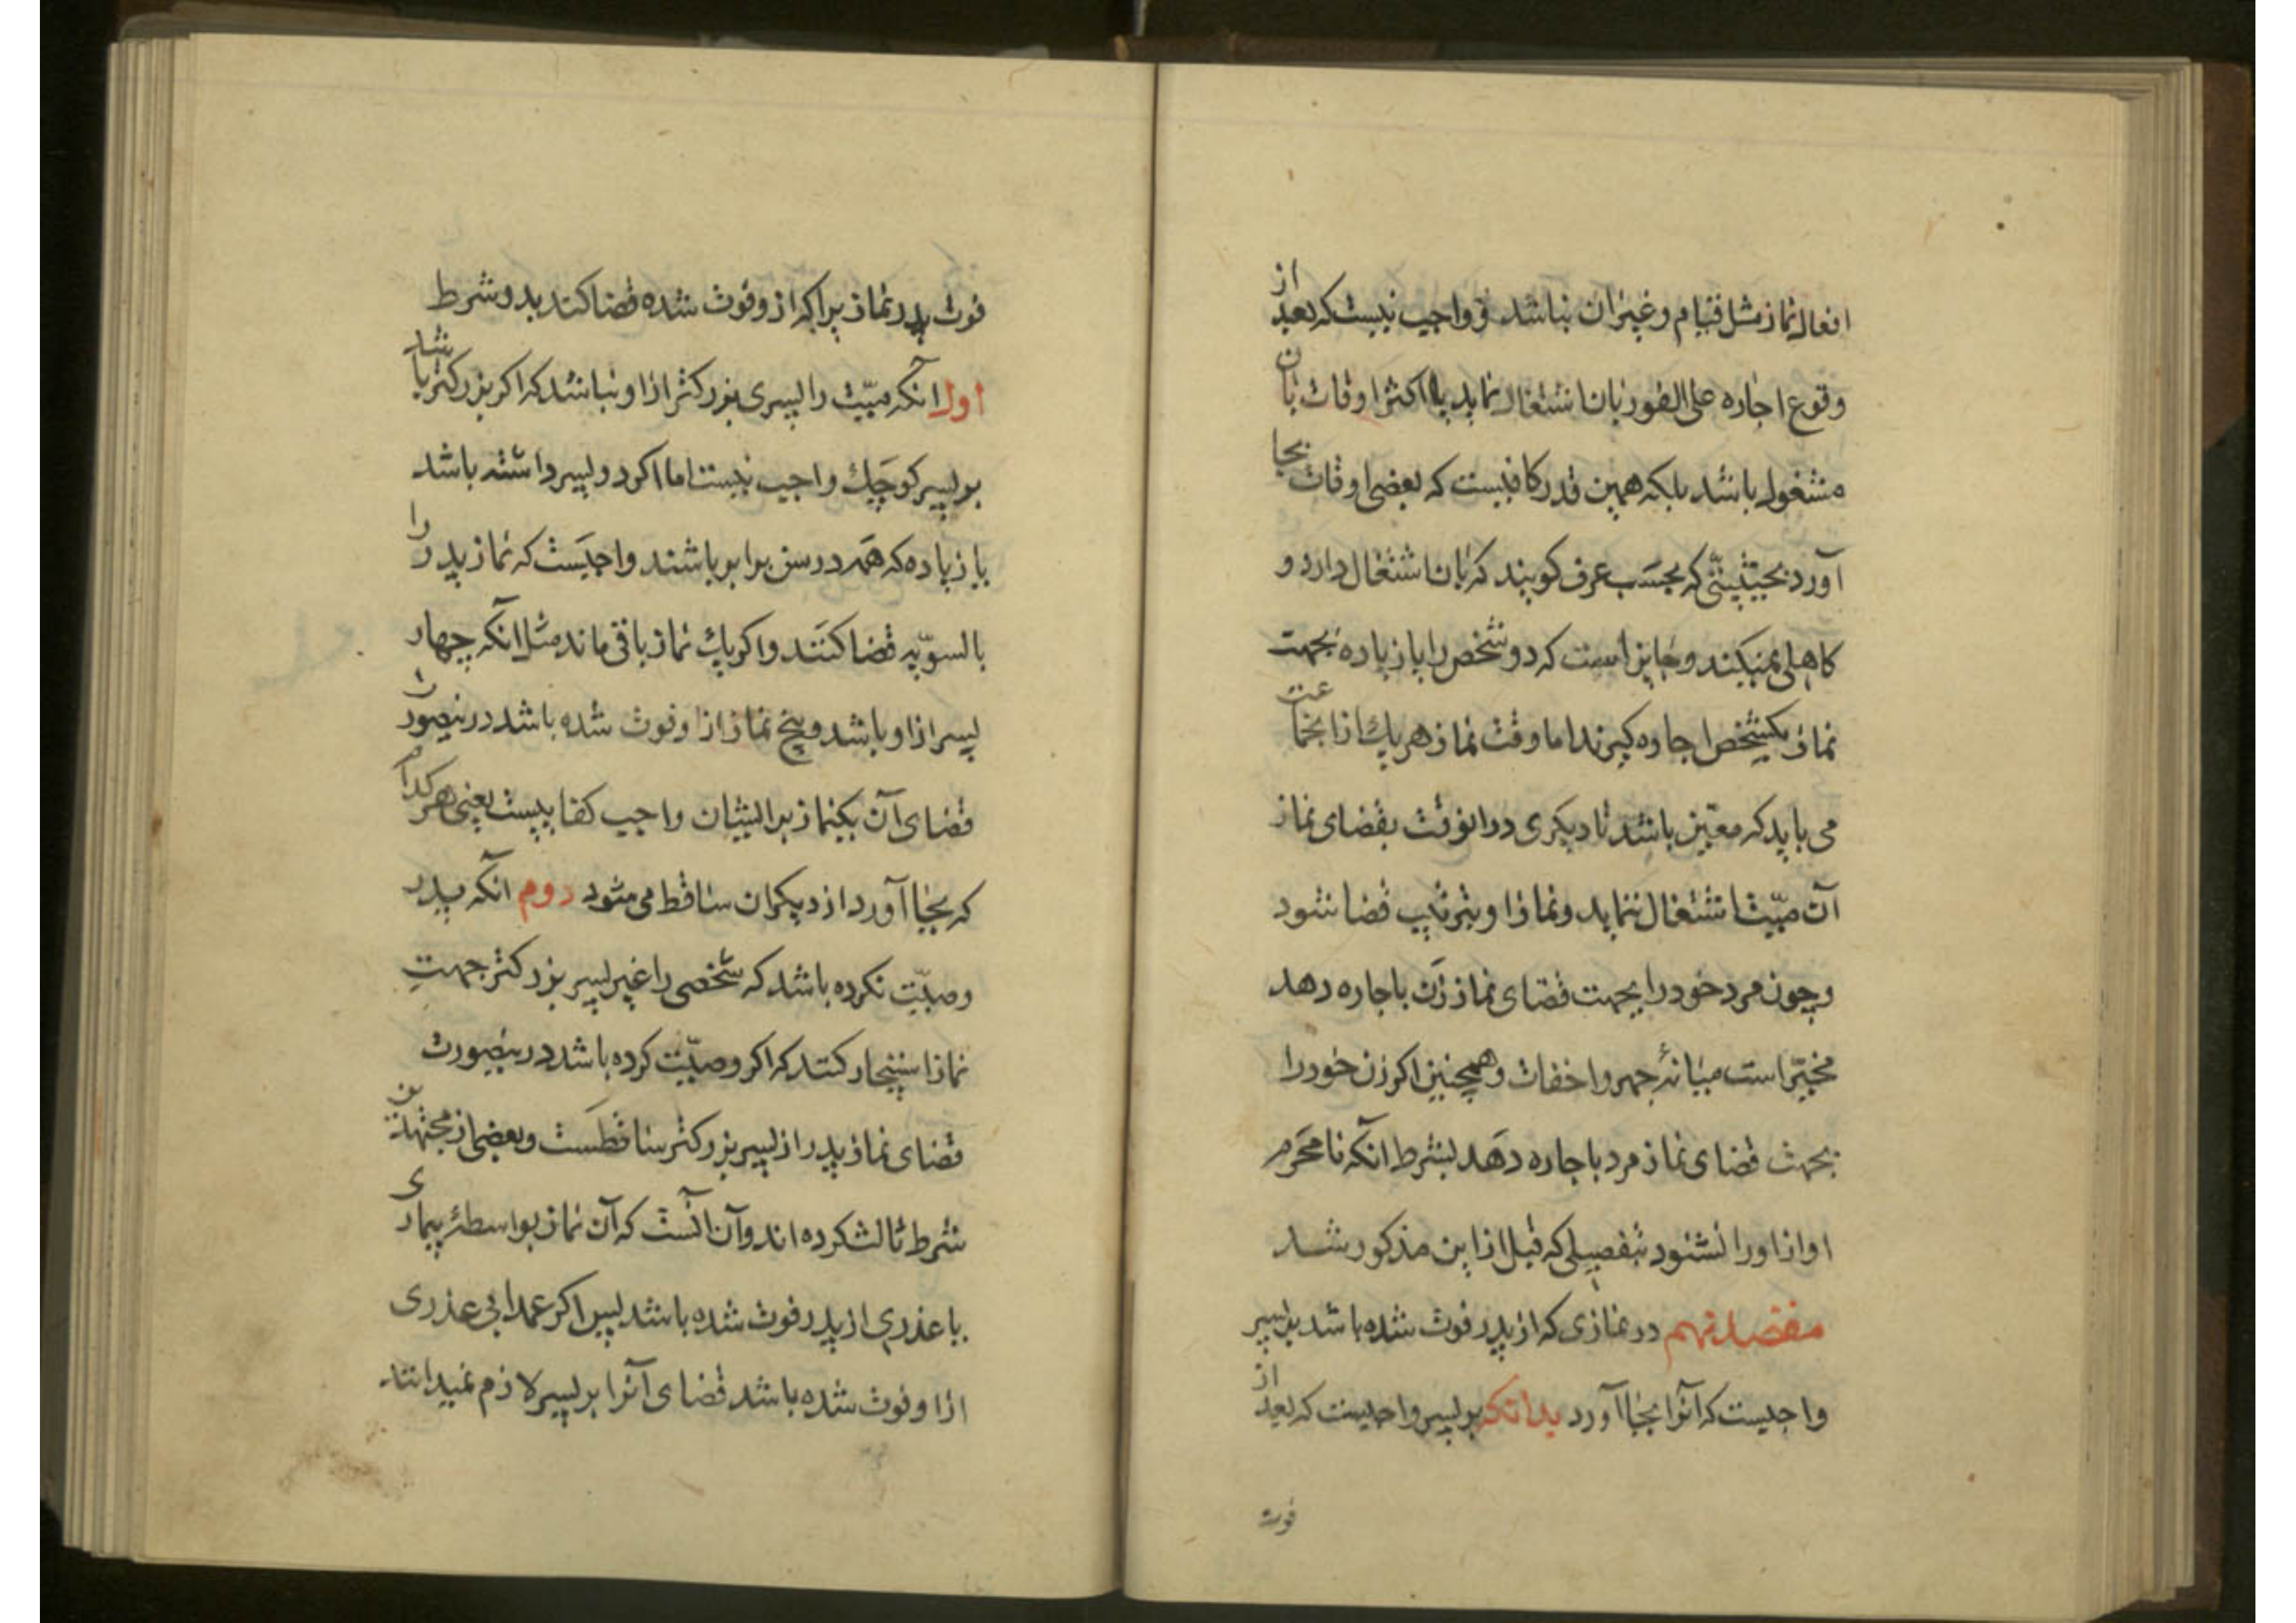 افعال نماز مثل قیام و غیر آن نباشد و واجب نیست که بعد از
وقوع اجاره علی الفور بآن اشتغال نماید یا اکثر اوقات بآن
مشغول باشد بلکه همین قدر کافیست که بعضی اوقات بجا
آورد بحیثیتی که بحسب عرف کویند که بآن اشتغال دارد و
کاهلی نمیکند و جایز است که دو شخص را یا زیاده بجهت
نماز یکشخص اجاره کیرند اما وقت نماز هر یک از آنجماعت
می باید که معین باشد تا دیکری در آنوقت بقضای نماز
آن میت اشتغال ننماید و نماز او بترتیب قضا شود
و چون مرد خود را بجهت قضای نماز زن باجاره دهد
مخیر است میانهٔ جهر و اخفات و همچنین اکر زن خود را
بجهت قضای نماز مرد باجاره دهد بشرط آنکه نامحرم
اواز او را نشنود بتفصیلی که قبل از این مذکور شد
مقصد نهم در نمازی که از پدر فوت شده باشد بر پسر
واجبست که آنرا بجا آورد بدانکه بر پسر واجبست که بعد از
فوت
فوت پدر نماز براکه از و فوت شده قضا کند بدو شرط
اول آنکه میت را پسری بزرکتر از او نباشد که اکر بزرکتر باشد
بر پسر کوچک واجب نیست اما اکر دو پسر داشته باشد
یا زیاده که همه در سن برابر باشند واجبست که نماز پدر را
بالسویه قضا کنند و اکر یک نماز باقی ماند مثل آنکه چهار
پسر از او باشد و پنج نماز از او فوت شده باشد درینصورت
قضای آن یکنماز بر ایشان واجب کفاییست یعنی هر کدام
که بجا آورد از دیکران ساقط می شود دوم آنکه پدر
وصیت نکرده باشد که شخصی را غیر پسر بزرکتر جهت
نماز استیجار کنند که اکر وصیت کرده باشد درینصورت
قضای نماز پدر از پسر بزرکتر ساقطست و بعضی از مجتهدین
شرط ثالث کرده اند و آن آنست که آن نماز بواسطهٔ بیماری
یا عذری از پدر فوت شده باشد پس اکر عمدا بی عذری
از او فوت شده باشد قضای آنرا بر پسر لازم نمیدانند